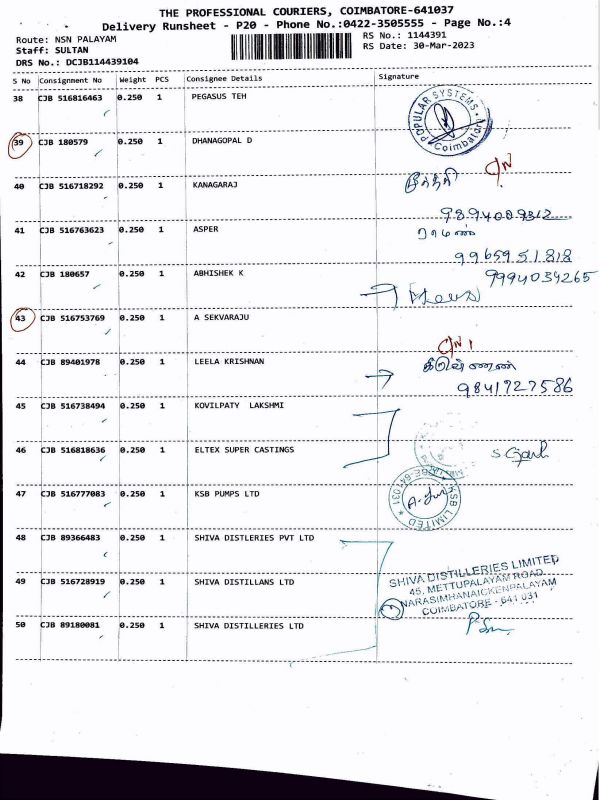 THE PROFESSIONAL COURIERS, COIMBATORE-641037
Delivery Runsheet - P20 - Phone No.:0422-3505555 - Page No.:4
Route: NSN PALAYAM
RS No.: 1144391
Staff: SULTAN
RS Date: 30-Mar-2023
DRS No.: DCJB114439104
S No Consignment No Weight PCS Consignee Details Signature
38 CJB 516816463 0.250 1 PEGASUS TEH
POPULAR SYSTEMS
Coimbatore
39 CJB 180579 0.250 1 DHANAGOPAL D
40 CJB 516718292 0.250 1 KANAGARAJ
9894089312
41 CJB 516763623 0.250 1 ASPER
9965951818
42 CJB 180657 0.250 1 ABHISHEK K
9994034265
43 CJB 516753769 0.250 1 A SEKVARAJU
44 CJB 89401978 0.250 1 LEELA KRISHNAN
9841727586
45 CJB 516738494 0.250 1 KOVILPATY LAKSHMI
46 CJB 516818636 0.250 1 ELTEX SUPER CASTINGS
47 CJB 516777083 0.250 1 KSB PUMPS LTD
KSB LIMITED
641-031
48 CJB 89366483 0.250 1 SHIVA DISTLERIES PVT LTD
49 CJB 516728919 0.250 1 SHIVA DISTILLANS LTD
SHIVA DISTILLERIES LIMITED
45, METTUPALAYAM ROAD
NARASIMHANAICKENPALAYAM
COIMBATORE - 641 031
50 CJB 89180081 0.250 1 SHIVA DISTILLERIES LTD